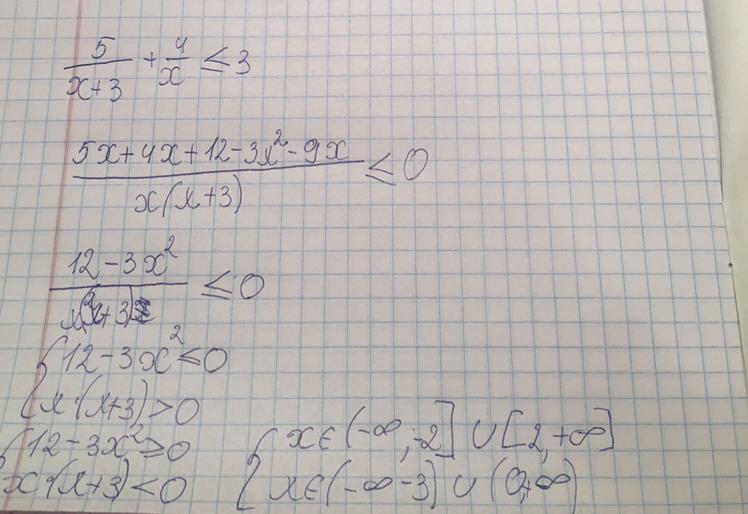 5/(x+3) + 4/x ≤ 3
(5x+4x+12-3x²-9x)/(x(x+3)) ≤ 0
(12-3x²)/(x(x+3)) ≤ 0
{12-3x² ≤ 0
x·(x+3) > 0
{12-3x² ≥ 0
x·(x+3) < 0
{x∈(-∞,-2] ∪ [2,+∞]
x∈(-∞ -3) ∪ (0,+∞)